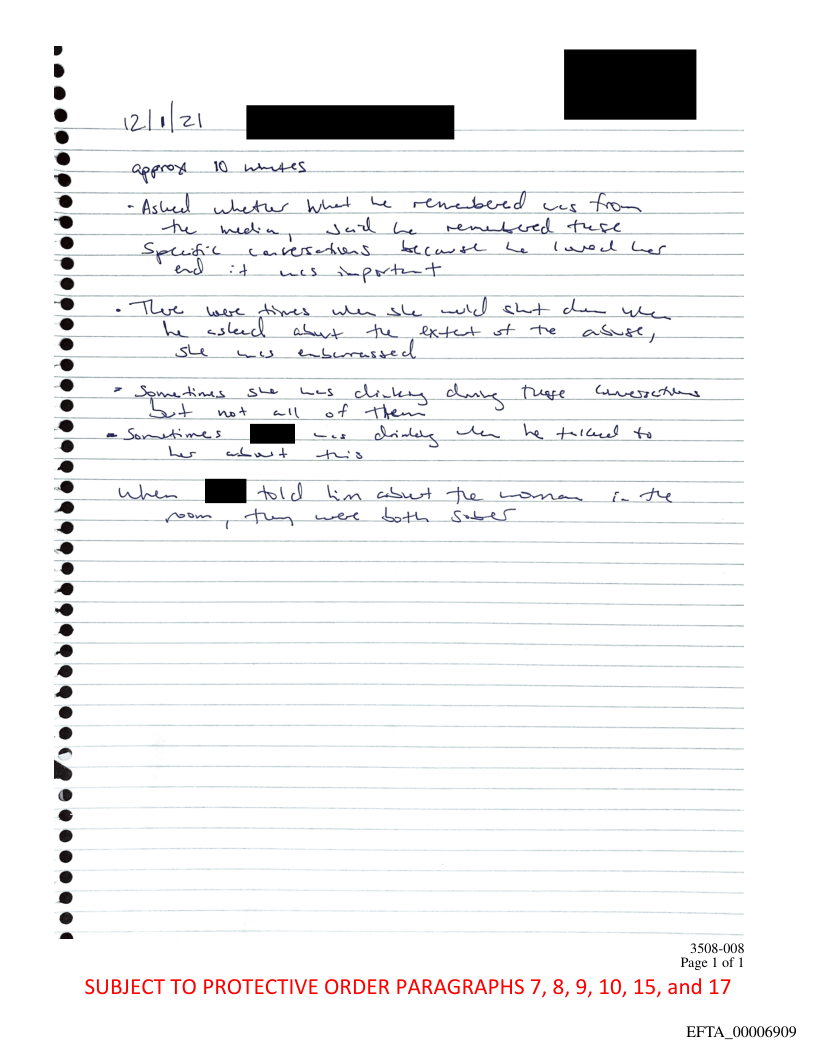 12/1/21
approx 10 minutes
- Asked whether what he remembered was from
the media, said he remembered these
specific conversations because he loved her
and it was important
• There were times when she would shut down when
he asked about the extent of the abuse,
she was embarrassed
• Sometimes she was drinking during these conversations
but not all of them
- Sometimes was drinking when he talked to
her about this
When told him about the woman in the
room, they were both sober
3508-008
Page 1 of 1
SUBJECT TO PROTECTIVE ORDER PARAGRAPHS 7, 8, 9, 10, 15, and 17
EFTA_00006909